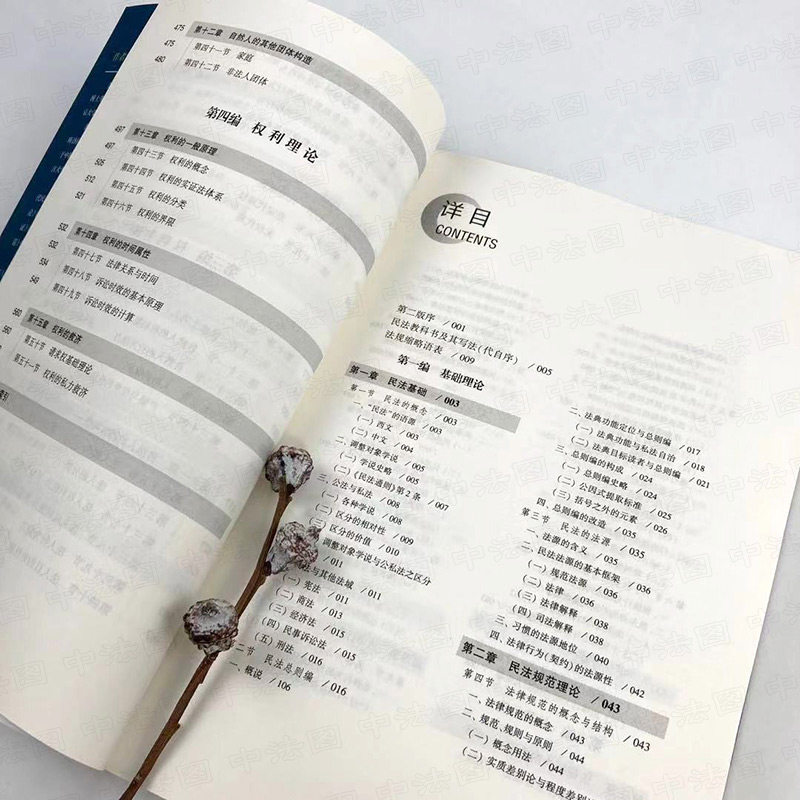 475 第十二章 自然人的其他团体构造
475 第四十一节 家庭
480 第四十二节 非法人团体
第四编 权利理论
497 第十三章 权利的一般原理
497 第四十三节 权利的概念
506 第四十四节 权利的实证法体系
512 第四十五节 权利的分类
521 第四十六节 权利的界限
532 第十四章 权利的时间属性
532 第四十七节 法律关系与时间
第四十八节 诉讼时效的基本原理
第四十九节 诉讼时效的计算
第十五章 权利的救济
第五十节 请求权基础理论
第五十一节 权利的私力救济
索引
详目
CONTENTS
第二版序 /001
民法教科书及其写法(代自序) /005
法规缩略语表 /009
第一编 基础理论
第一章 民法基础 /003
第一节 民法的概念 /003
一、“民法”的语源 /003
(一)西文 /003
(二)中文 /004
二、调整对象学说 /005
(一)学说史略 /005
(二)《民法通则》第2条 /007
三、公法与私法 /008
(一)各种学说 /008
(二)区分的相对性 /009
(三)区分的价值 /010
调整对象学说与公私法之区分 /011
法与其他法域 /011
(一)宪法 /011
(二)商法 /013
(三)经济法 /015
(四)民事诉讼法 /015
(五)刑法 /016
二节 民法总则编 /016
一、概说 /106
二、法典功能定位与总则编 /017
(一)法典功能与私法自治 /018
(二)法典目标读者与总则编 /021
三、总则编的构成 /024
(一)总则编史略 /024
(二)公因式提取标准 /025
(三)括号之外的元素 /026
四、总则编的改造 /035
第三节 民法的法源 /035
一、法源的含义 /035
二、民法法源的基本框架 /036
(一)规范法源 /036
(二)法律 /036
(三)法律解释 /038
(四)司法解释 /038
三、习惯的法源地位 /040
四、法律行为(契约)的法源性 /042
第二章 民法规范理论 /043
第四节 法律规范的概念与结构 /043
一、法律规范的概念 /043
二、规范、规则与原则 /044
(一)概念用法 /044
(二)实质差别论与程度差别
中法图